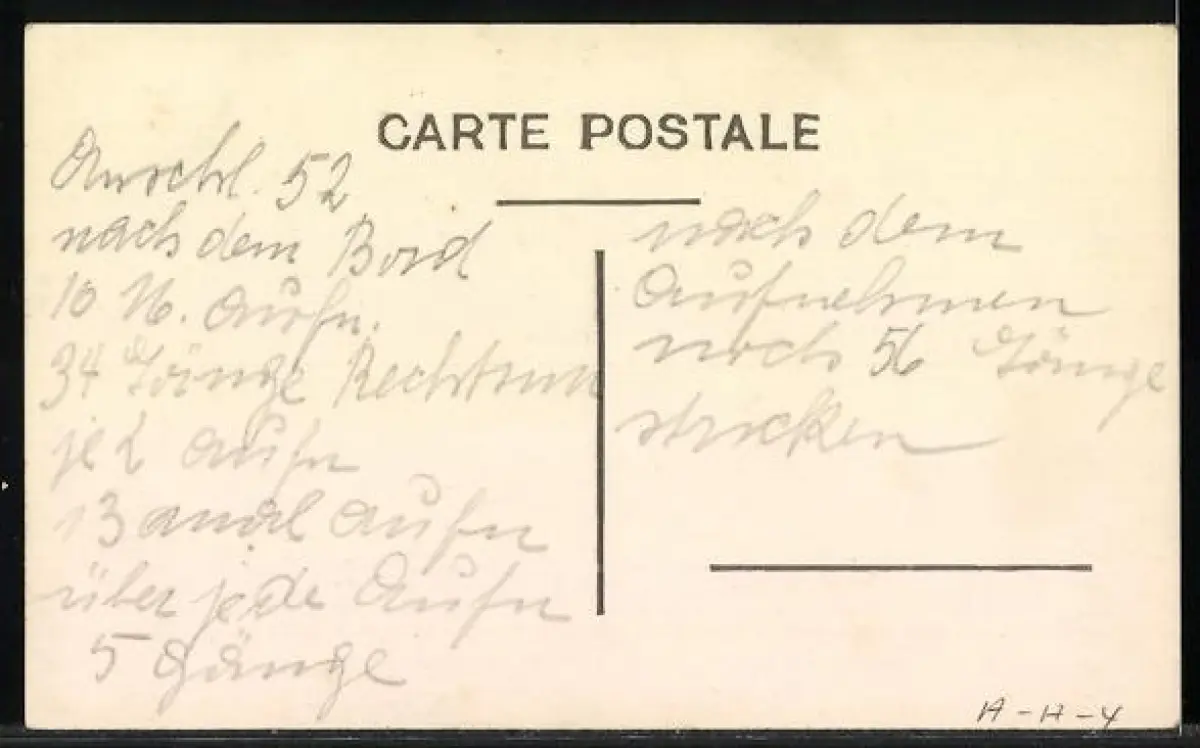 CARTE POSTALE
Anschl. 52
nach dem Bord
10 N. Aufn.
34 Gänge Rechtsum
je 2 Aufn
13 mal Aufn
über jede Aufn
5 Gänge
nach dem
Aufnehmen
noch 56 Gänge
stricken
A-H-4